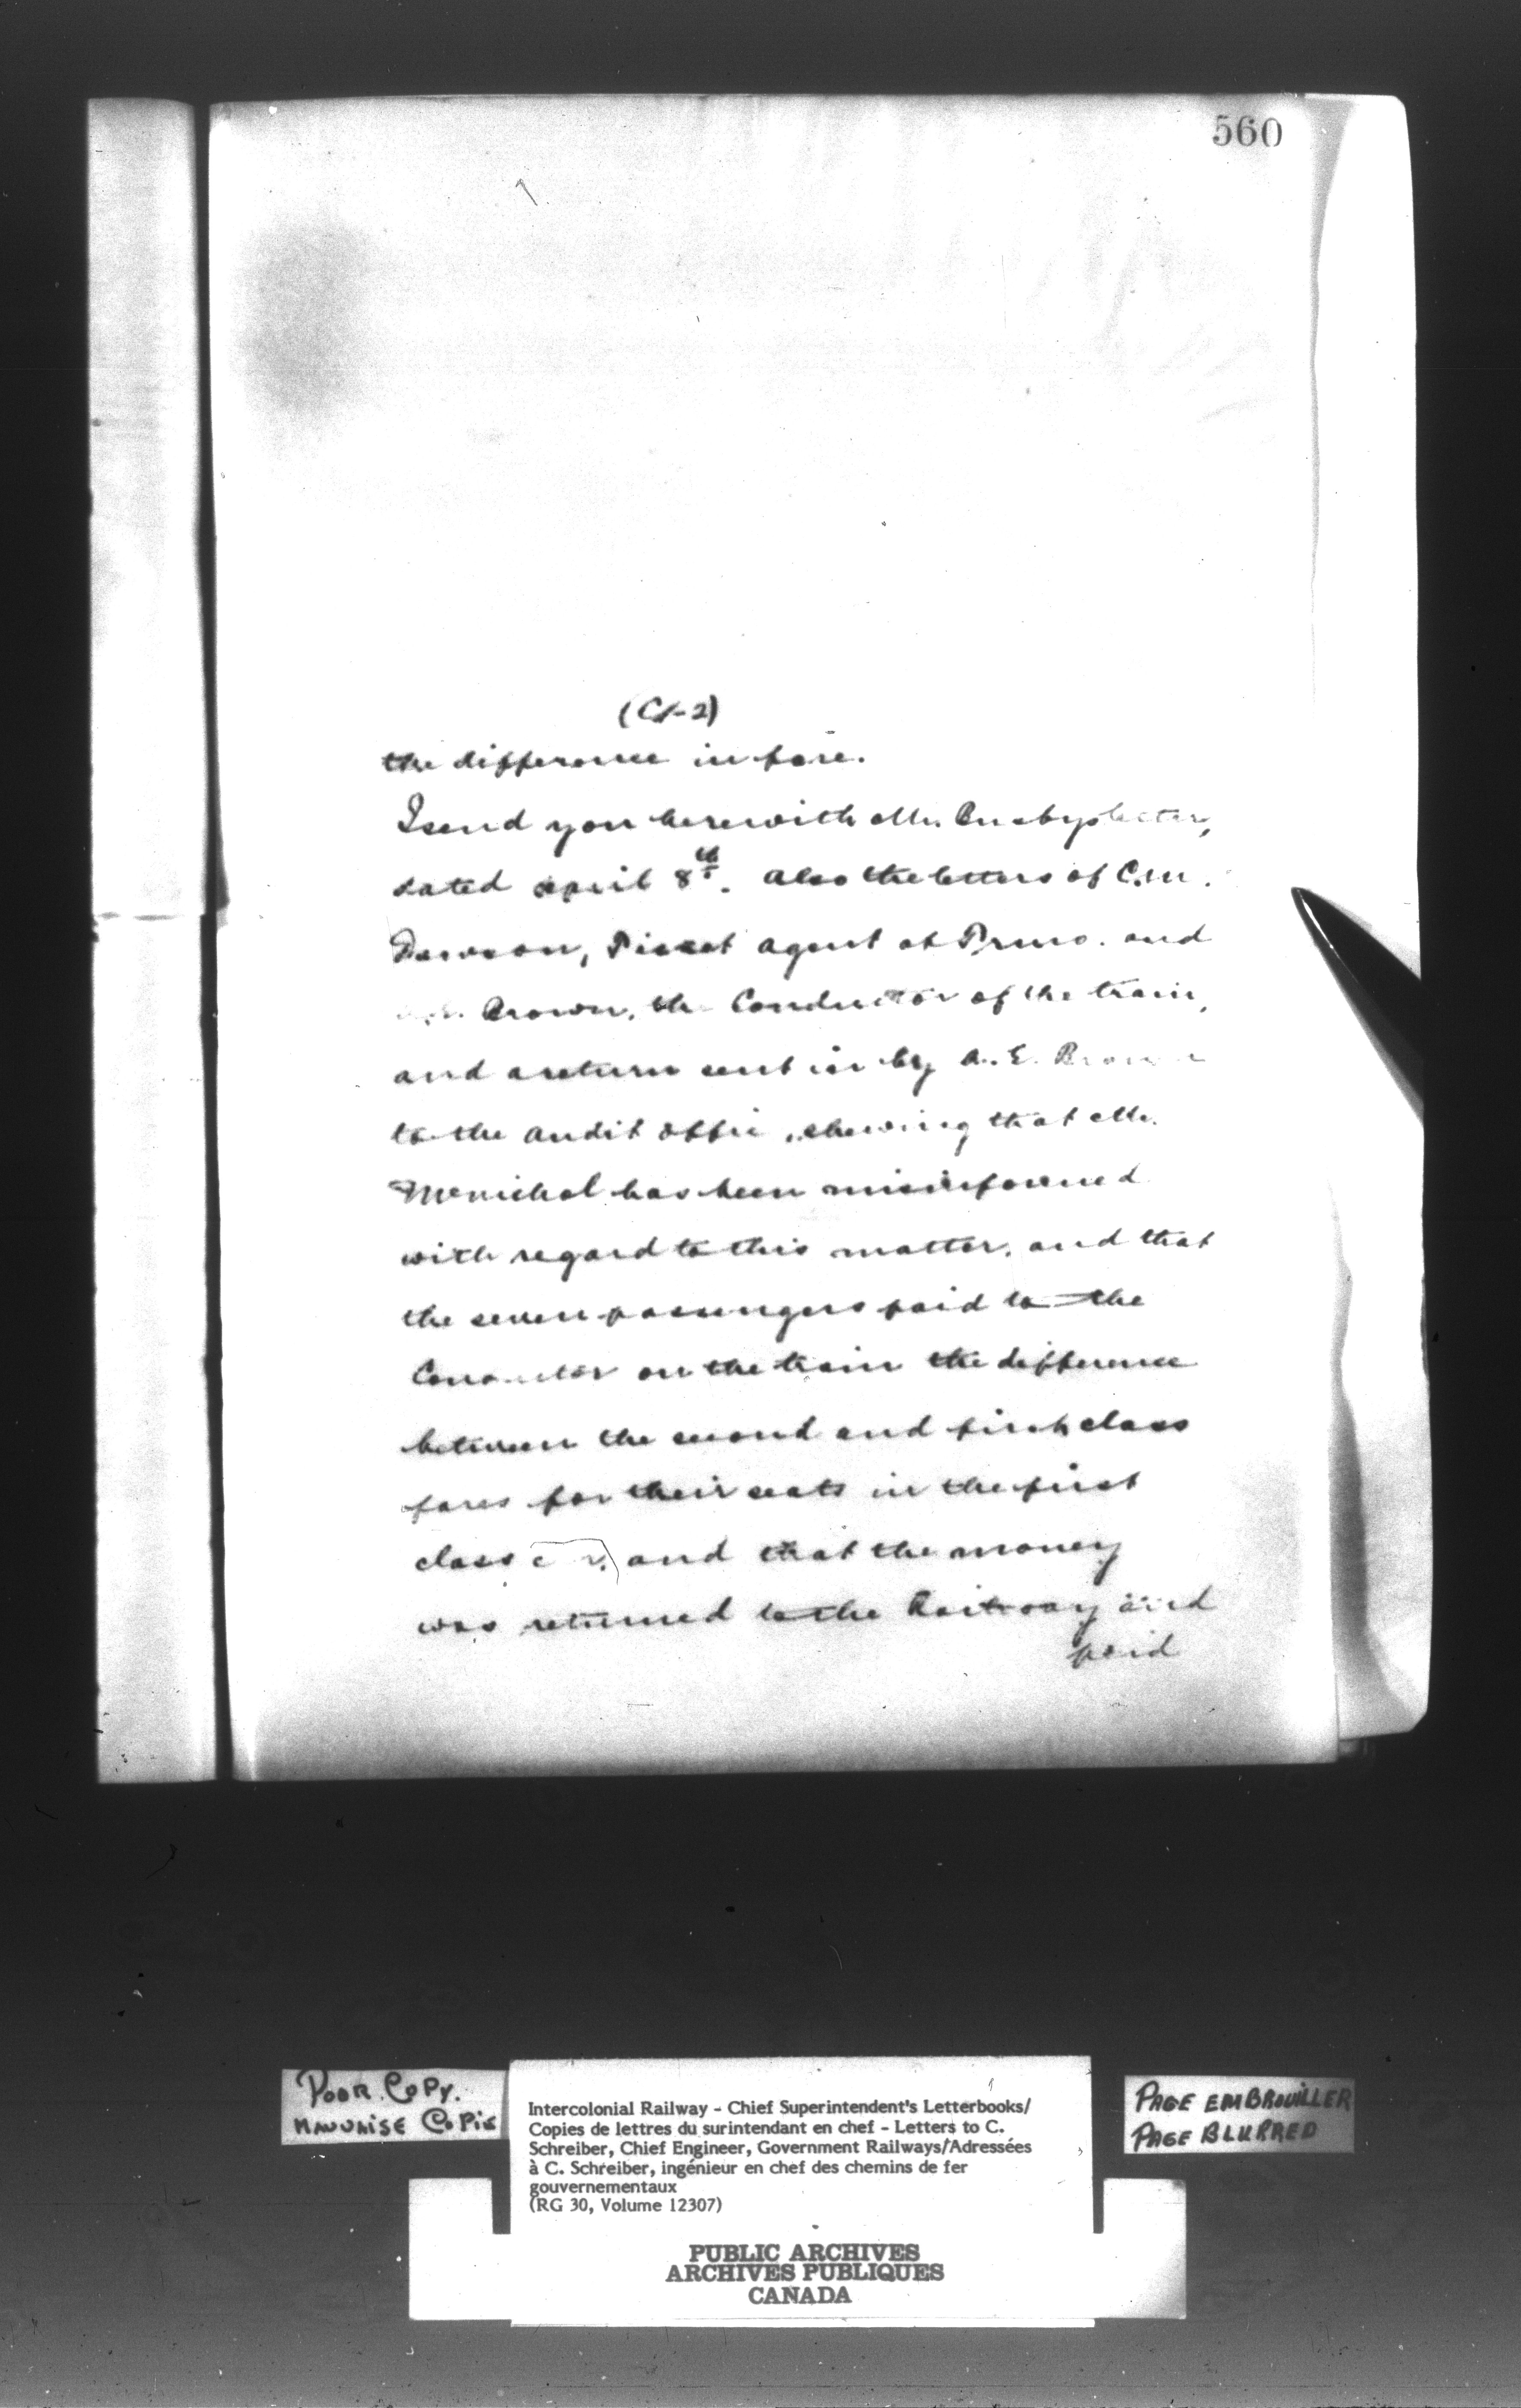 560
(C/-2)
the difference in fare.
I send you herewith Mr. Busbys letter,
dated April 8th. Also the letters of C.W.
Dawson, Ticket Agent at Truro. and
Brown, the Conductor of the train,
and a return sent in by A. E. Brown
to the Audit Office, shewing that Mr.
McNichol has been misinformed
with regard to this matter, and that
the seven passengers paid to the
Conductor on the train the difference
between the second and first class
fares for their seats in the first
class car, and that the money
was returned to the Railway and
paid
POOR COPY.
MAUVAISE COPIE
Intercolonial Railway - Chief Superintendent's Letterbooks/
Copies de lettres du surintendant en chef - Letters to C.
Schreiber, Chief Engineer, Government Railways/Adressées
à C. Schreiber, ingénieur en chef des chemins de fer
gouvernementaux
(RG 30, Volume 12307)
PAGE EMBROUILLER
PAGE BLURRED
PUBLIC ARCHIVES
ARCHIVES PUBLIQUES
CANADA